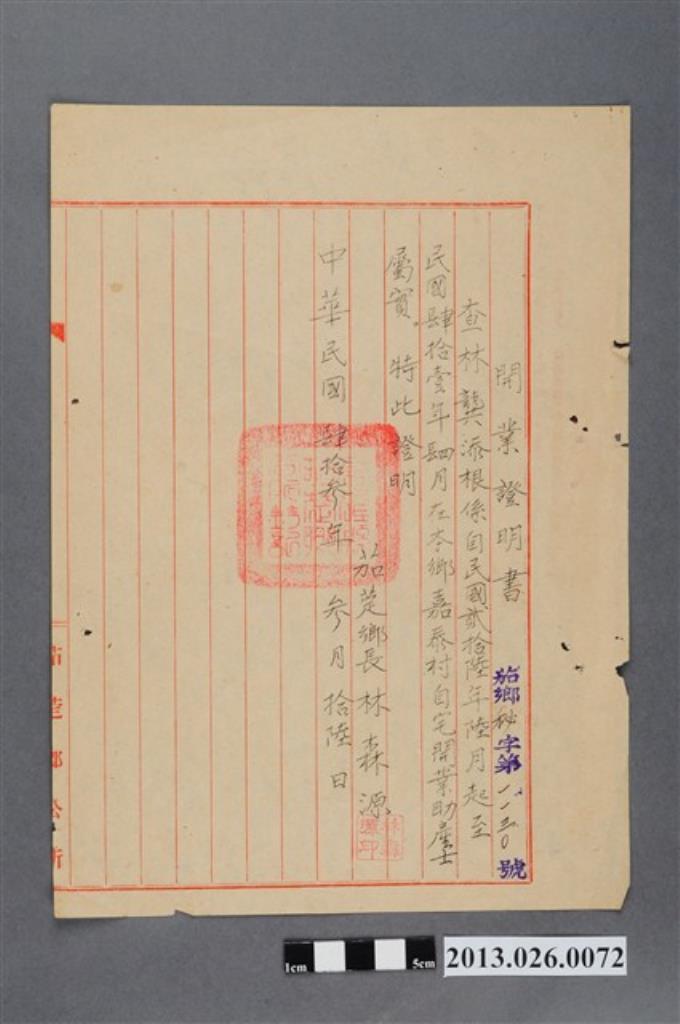 開業證明書
茄鄉秘字第一一三〇號
查林龔添根係自民國貳拾陸年陸月起至
民國肆拾壹年肆月在本鄉嘉泰村自宅開業助產士
屬實。特此證明
茄萣鄉長林森源
中華民國肆拾參年參月拾陸日
茄萣鄉公所
1cm
5cm
2013.026.0072